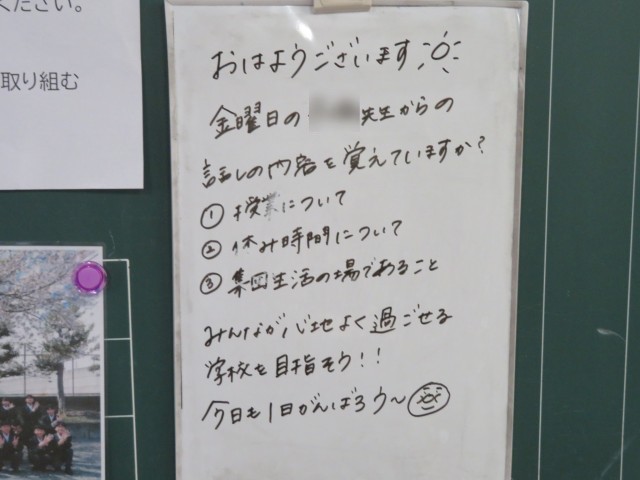 ください。
取り組む
おはようございます
金曜日の 先生からの
話しの内容を覚えていますか?
① 授業について
② 休み時間について
③ 集団生活の場であること
みんなが心地よく過ごせる
学校を目指そう!!
今日も1日がんばろう〜